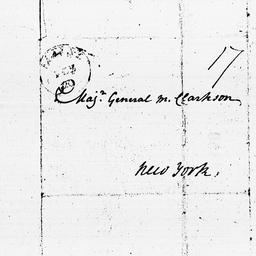 17
Majr. General M. Clarkson
New York.